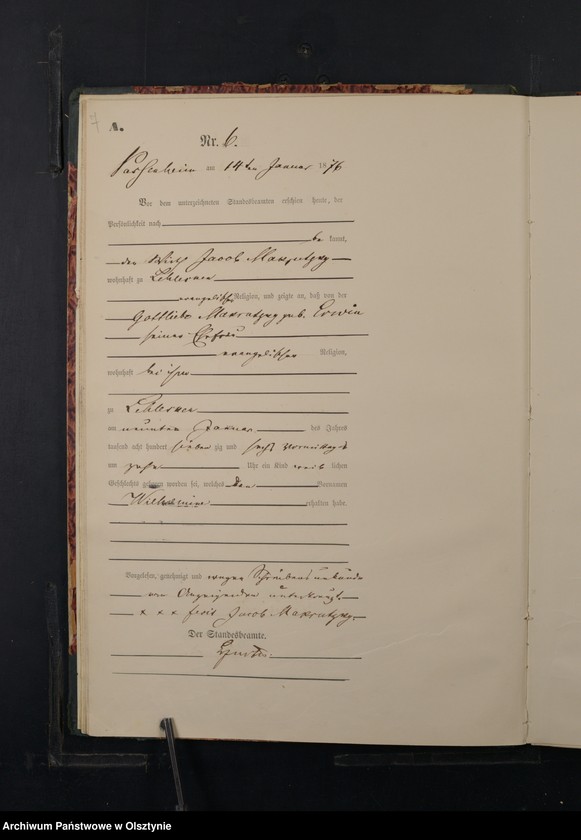 7 A.
Nr. 6.
Passenheim am 14ten Januar 1876
Vor dem unterzeichneten Standesbeamten erschien heute, der
Persönlichkeit nach
be kannt,
der Wirth Jacob
wohnhaft zu
evangelischer Religion, und zeigte an, daß von der
Gottliebe geb. Erwin
seiner Ehefrau
evangelischer Religion,
wohnhaft bei ihm
zu
am neunten Januar des Jahres
tausend acht hundert sieben zig und sechs Vormittags
um Uhr ein Kind weib lichen
Geschlechts geboren worden sei, welches den Vornamen
Wilhelmine erhalten habe.
Vorgelesen, genehmigt und wegen Schreibensunkunde
vom Anzeigenden unterkreuzt
x x x Jacob
Der Standesbeamte.
Archiwum Państwowe w Olsztynie